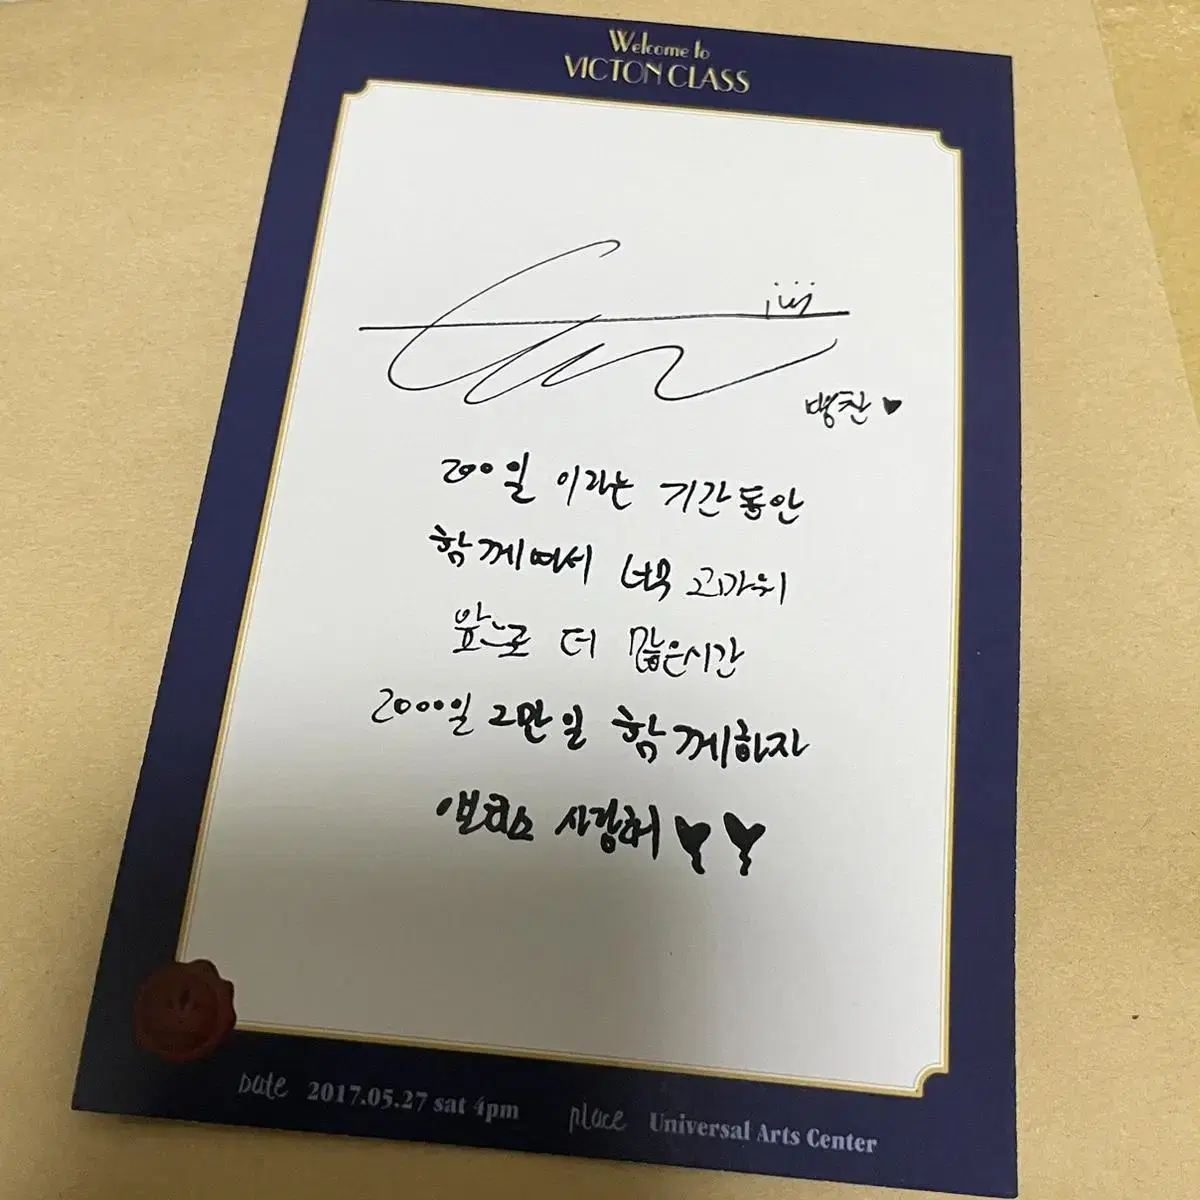 Welcome to
VICTON CLASS
병찬♥
200일 이라는 기간동안
함께여서 너무 고마워
앞으로 더 많은시간
2000일 2만일 함께하자
앨리스 사랑해♥♥
Date 2017.05.27 sat 4pm place Universal Arts Center